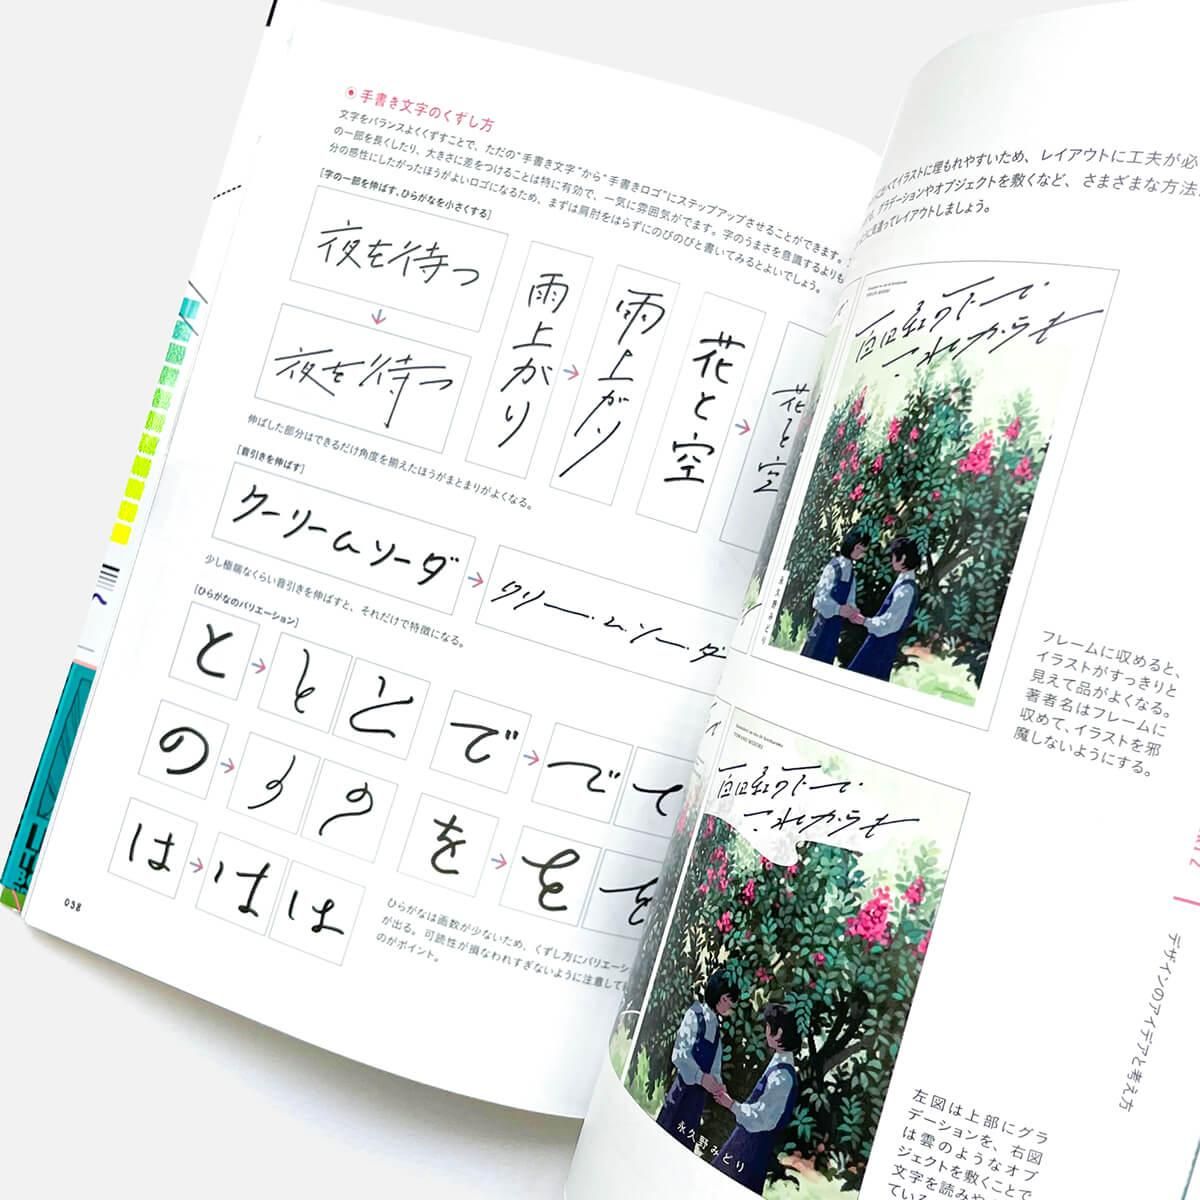 手書き文字のくずし方
文字をバランスよくくずすことで、ただの“手書き文字”から“手書きロゴ”にステップアップさせることができます。
の一部を長くしたり、大きさに差をつけることは特に有効で、一気に雰囲気がでます。字のうまさを意識するよりも
分の感性にしたがったほうがよいロゴになるため、まずは肩肘をはらずにのびのびと書いてみるとよいでしょう。
[字の一部を伸ばす、ひらがなを小さくする]
夜を待つ
夜を待つ
雨上がり
雨上がり
花と空
花と空
伸ばした部分はできるだけ角度を揃えたほうがまとまりがよくなる。
[音引きを伸ばす]
クーリームソーダ
クリームソーダ
少し極端なくらい音引きを伸ばすと、それだけで特徴になる。
[ひらがなのバリエーション]
と
と
と
で
で
て
の
の
の
を
を
を
は
は
は
ひらがなは画数が少ないため、くずし方にバリエーション
が出る。可読性が損なわれすぎないように注意して
のがポイント。
038
べてイラストに埋もれやすいため、レイアウトに工夫が必
グラデーションやオブジェクトを敷くなど、さまざまな方法
に見てレイアウトしましょう。
TOKYO BOOKS
これからも
永久野みどり
フレームに収めると、
イラストがすっきりと
見えて品がよくなる。
著者名はフレームに
収めて、イラストを邪
魔しないようにする。
TOKYO BOOKS
これからも
永久野みどり
左図は上部にグラ
デーションを、右図
は雲のようなオブ
ジェクトを敷くことで
文字を読みや
ている
デザインのアイデアと考え方